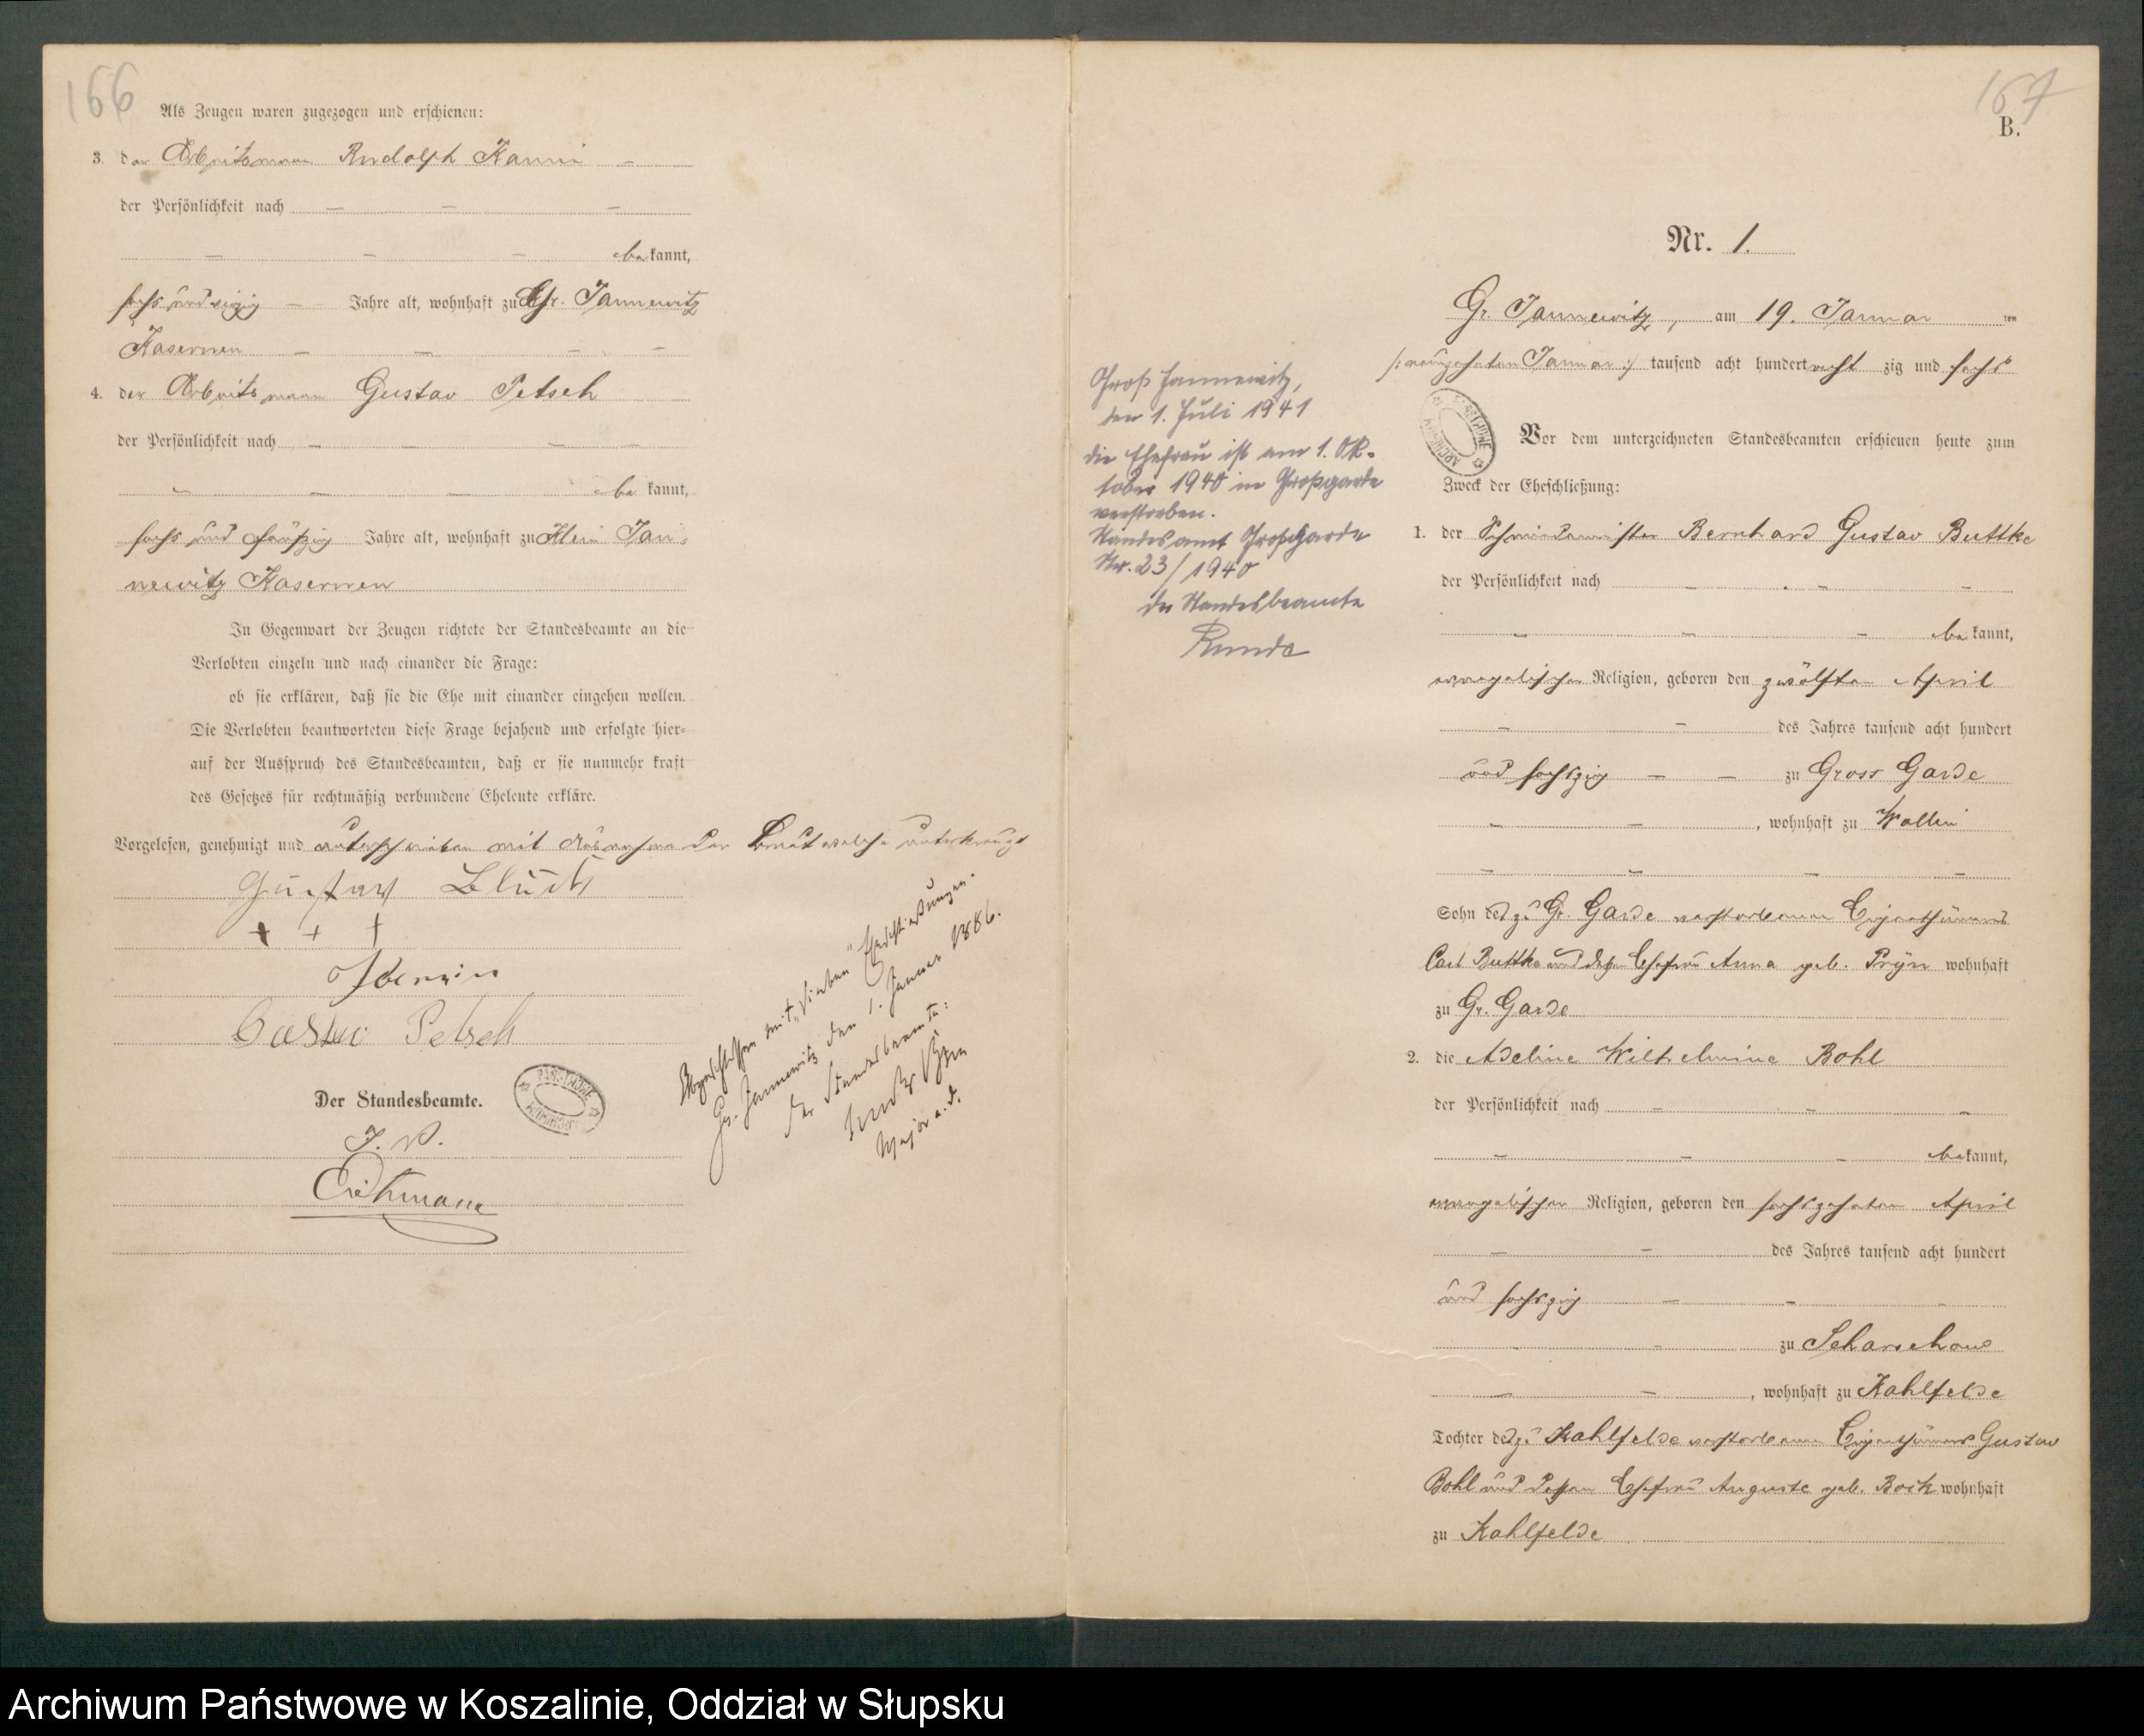 166
Als Zeugen waren zugezogen und erschienen:
3. der Arbeitsmann Rudolph Kamin –
der Persönlichkeit nach – – –
– – – bekannt,
sechs und vierzig – Jahre alt, wohnhaft zu Gr. Jannewitz
Kasernen – – – –
4. der Arbeitsmann Gustav Petsch
der Persönlichkeit nach – – – –
– – – bekannt,
sechs und fünfzig Jahre alt, wohnhaft zu Klein Jan-
newitz Kasernen
In Gegenwart der Zeugen richtete der Standesbeamte an die
Verlobten einzeln und nach einander die Frage:
ob sie erklären, daß sie die Ehe mit einander eingehen wollen.
Die Verlobten beantworteten diese Frage bejahend und erfolgte hier-
auf der Ausspruch des Standesbeamten, daß er sie nunmehr kraft
des Gesetzes für rechtmäßig verbundene Eheleute erkläre.
Vorgelesen, genehmigt und unterschrieben mit Ausnahme der Braut welche unterkreuzt
Gustav
+ + +
Gustav Petsch
Der Standesbeamte.
J. V.
Abgeschlossen mit „sieben“ Eheschließungen.
Gr. Jannewitz den 1. Januar 1886.
Der Standesbeamte:
Major a. D.
167
B.
Nr. 1.
Gr. Jannewitz, am 19. Januar ten
/: neunzehnten Januar :/ tausend acht hundert acht zig und sechs
Vor dem unterzeichneten Standesbeamten erschienen heute zum
Zweck der Eheschließung:
1. der Schmiedemeister Bernhard Gustav Buttke
der Persönlichkeit nach – – –
– – – bekannt,
evangelischer Religion, geboren den zwölften April
– – des Jahres tausend acht hundert
und sechszig – – zu Gross Garde
– – , wohnhaft zu Wollin
– – – –
Sohn des zu Gr. Garde verstorbenen Eigenthümers
Carl Buttke und dessen Ehefrau Anna geb. Prÿn wohnhaft
zu Gr. Garde
2. die Adeline Wilhelmine Bohl
der Persönlichkeit nach – – –
– – – bekannt,
evangelischer Religion, geboren den sechszehnten April
– – des Jahres tausend acht hundert
und sechszig – –
zu Scharschow
– – , wohnhaft zu Kahlfelde
Tochter des zu Kahlfelde verstorbenen Eigenthümers Gustav
Bohl und dessen Ehefrau Auguste geb. Bock wohnhaft
zu Kahlfelde
Groß Jannewitz,
den 1. Juli 1941
die Ehefrau ist am 1. Ok-
tober 1940 in Großgarde
verstorben.
Standesamt Großgarde
Nr. 23/1940
der Standesbeamte
Archiwum Państwowe w Koszalinie, Oddział w Słupsku